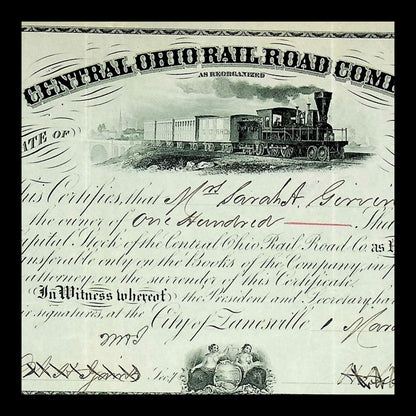 CENTRAL OHIO RAIL ROAD COMP
AS REORGANIZED
ATE OF
his Certifies, that Mrs Sarah A.
the owner of One Hundred
pital Stock of the Central Ohio Rail Road Co. as
nsferable only on the Books of the Company, in
attorney, on the surrender of this Certificate.
In Witness whereof the President and Secretary ha
ir signatures, at the City of Zanesville
Sec.y